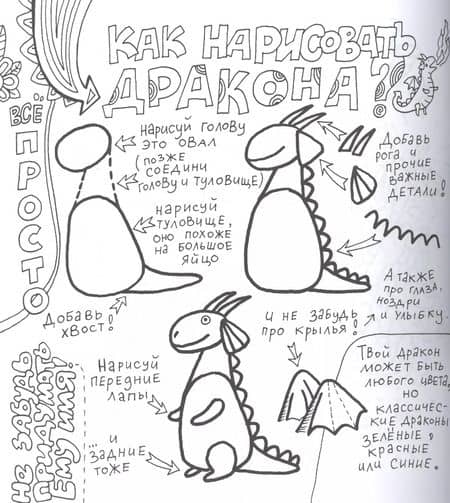 КАК НАРИСОВАТЬ
ДРАКОНА?
ВСЁ ПРОСТО
НАРИСУЙ ГОЛОВУ
ЭТО ОВАЛ
(ПОЗЖЕ
СОЕДИНИ
ГОЛОВУ И ТУЛОВИЩЕ)
НАРИСУЙ
ТУЛОВИЩЕ,
ОНО ПОХОЖЕ
НА БОЛЬШОЕ
ЯЙЦО
ДОБАВЬ
ХВОСТ!
ДОБАВЬ
РОГА И
ПРОЧИЕ
ВАЖНЫЕ
ДЕТАЛИ!
А ТАКЖЕ
ПРО ГЛАЗА,
НОЗДРИ
И УЛЫБКУ.
И НЕ ЗАБУДЬ
ПРО КРЫЛЬЯ!
НАРИСУЙ
ПЕРЕДНИЕ
ЛАПЫ...
... И
ЗАДНИЕ
ТОЖЕ
ТВОЙ ДРАКОН
МОЖЕТ БЫТЬ
ЛЮБОГО ЦВЕТА,
НО
КЛАССИЧЕС-
КИЕ ДРАКОНЫ
ЗЕЛЁНЫЕ,
КРАСНЫЕ
ИЛИ СИНИЕ.
НЕ ЗАБУДЬ
ПРИДУМАТЬ
ЕМУ ИМЯ!